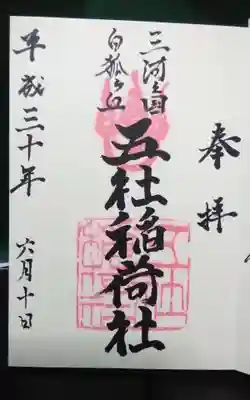 奉拝
三河之国
白狐ヶ丘
五社稲荷社
平成三十年
六月十日